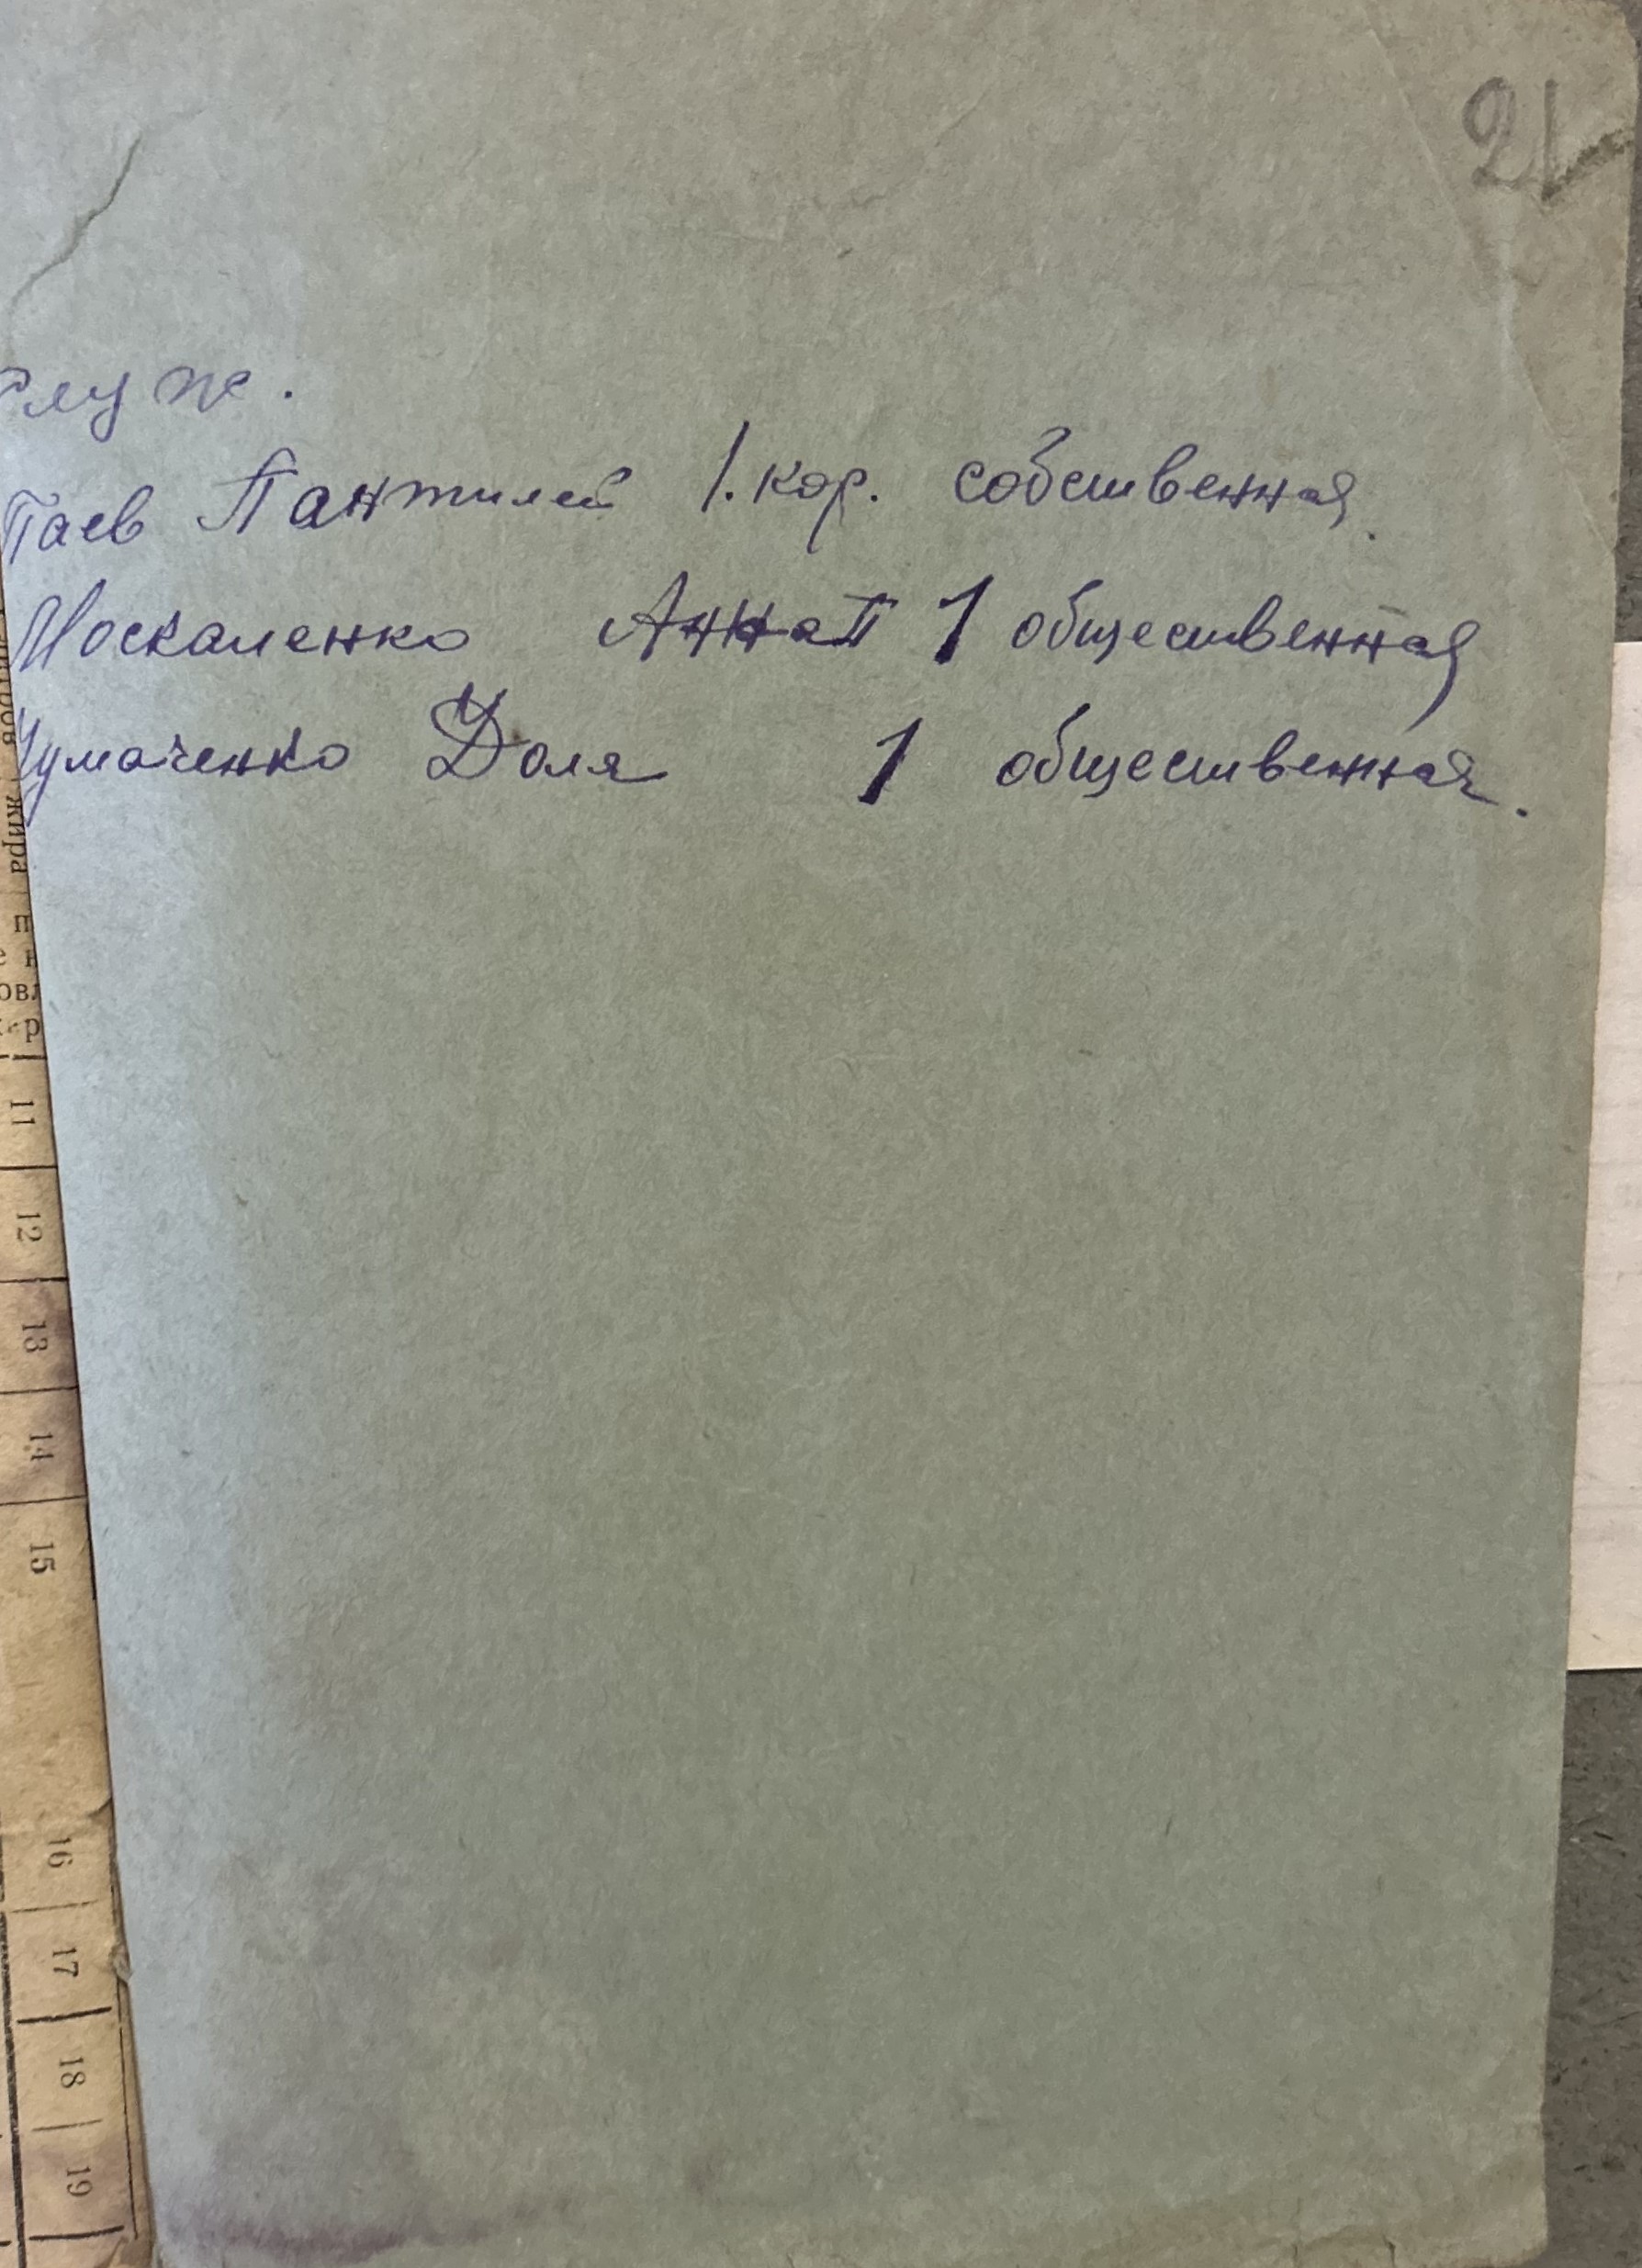 21
служ.
Паев Пантилей 1. кор. собственная.
Москаленко Анна II 1 общественная
Чумаченко Доля 1 общественная.
жира
11
12
13
14
15
16
17
18
19